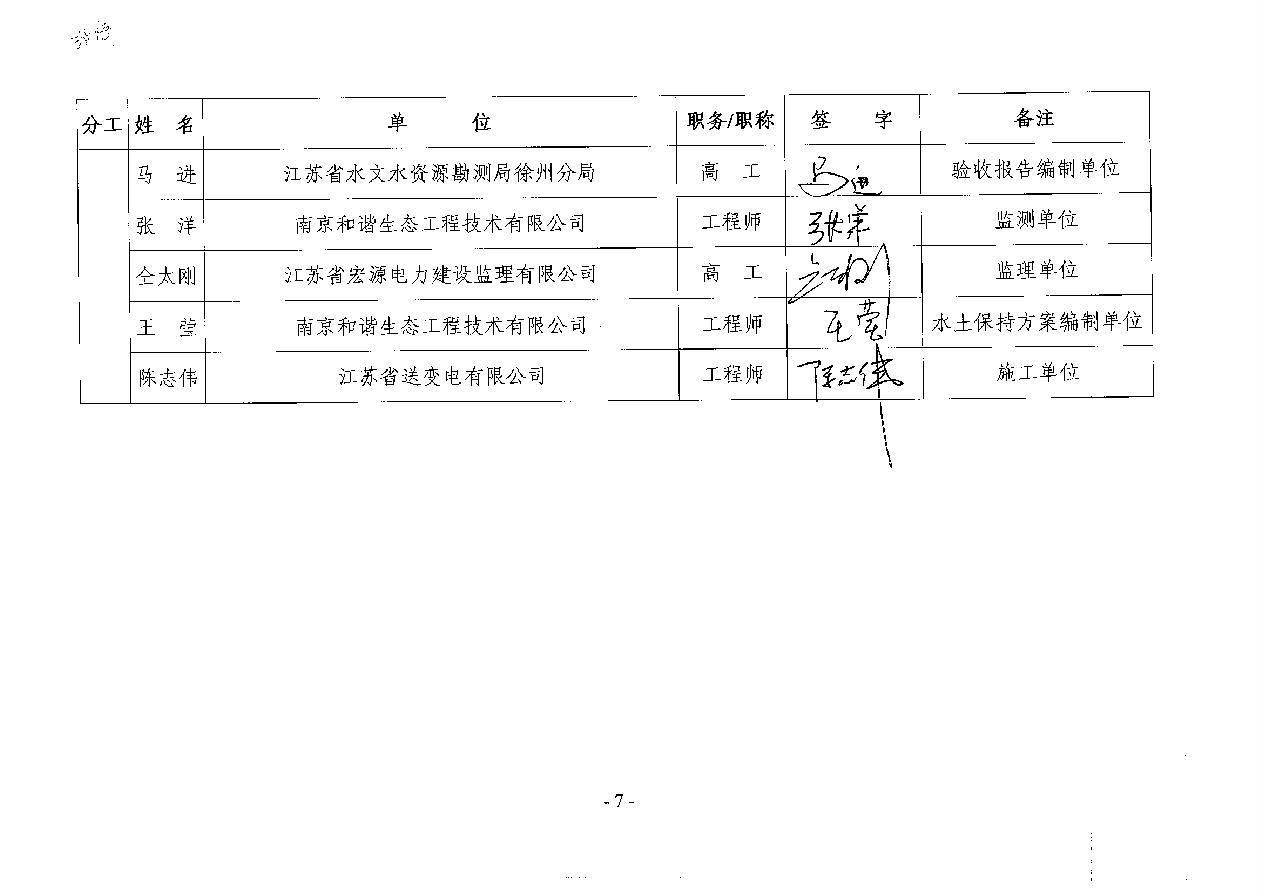 分工 姓 名 单 位 职务/职称 签 字 备注
马 进 江苏省水文水资源勘测局徐州分局 高 工 马进 验收报告编制单位
张 洋 南京和谐生态工程技术有限公司 工程师 张洋 监测单位
仝太刚 江苏省宏源电力建设监理有限公司 高 工 监理单位
王 莹 南京和谐生态工程技术有限公司 工程师 王莹 水土保持方案编制单位
陈志伟 江苏省送变电有限公司 工程师 陈志伟 施工单位
- 7 -